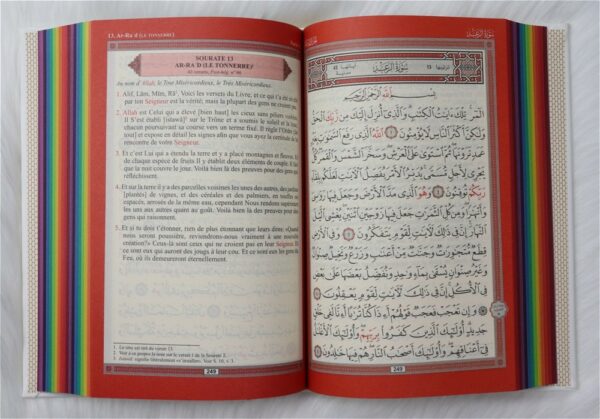 13. Ar-Ra'd (LE TONNERRE)
SOURATE 13
AR-RA'D (LE TONNERRE)¹
43 versets, Post-hég. n° 96
Au nom d'Allah, le Tout Miséricordieux, le Très Miséricordieux.
1. Alif, Lâm, Mîm, Râ². Voici les versets du Livre; et ce qui t'a été
par ton Seigneur est la vérité; mais la plupart des gens ne croient pas.
2. Allah est Celui qui a élevé [bien haut] les cieux sans piliers visibles.
Il S'est établi [istawâ]³ sur le Trône et a soumis le soleil et la lune,
chacun poursuivant sa course vers un terme fixé. Il règle l'Ordre [de
tout] et expose en détail les signes afin que vous ayez la certitude de la
rencontre de votre Seigneur.
3. Et c'est Lui qui a étendu la terre et y a placé montagnes et fleuves. Et
de chaque espèce de fruits Il y établit deux éléments de couple. Il fait
que la nuit couvre le jour. Voilà bien là des preuves pour des gens qui
réfléchissent.
4. Et sur la terre il y a des parcelles voisines les unes des autres, des jardins
[plantés] de vignes, et des céréales et des palmiers, en touffes ou
espacés, arrosés de la même eau, cependant Nous rendons supérieurs
les uns aux autres quant au goût. Voilà bien là des preuves pour des
gens qui raisonnent.
5. Et si tu dois t'étonner, rien de plus étonnant que leurs dires: «Quand
nous serons poussière, reviendrons-nous vraiment à une nouvelle
création?» Ceux-là sont ceux qui ne croient pas en leur Seigneur. Et
ce sont eux qui auront des jougs à leur cou. Et ce sont eux les gens du
Feu, où ils demeureront éternellement.
1. Le titre est tiré du verset 13.
2. Voir à ce propos la note sur le verset 1 de la Sourate 2.
3. Istawâ: signifie littéralement en s'installer. Voir S. 10, v. 3.
249
سُورَةُ الرَّعْدِ
سُورَةُ الرَّعْدِ
بِسْمِ اللَّهِ الرَّحْمَٰنِ الرَّحِيمِ
الٓمٓر تِلْكَ ءَايَٰتُ ٱلْكِتَٰبِ وَٱلَّذِىٓ أُنزِلَ إِلَيْكَ مِن رَّبِّكَ ٱلْحَقُّ
وَلَٰكِنَّ أَكْثَرَ ٱلنَّاسِ لَا يُؤْمِنُونَ ١ ٱللَّهُ ٱلَّذِى رَفَعَ ٱلسَّمَٰوَٰتِ بِغَيْرِ
عَمَدٍ تَرَوْنَهَا ثُمَّ ٱسْتَوَىٰ عَلَى ٱلْعَرْشِ وَسَخَّرَ ٱلشَّمْسَ وَٱلْقَمَرَ كُلٌّ
يَجْرِى لِأَجَلٍ مُّسَمًّى يُدَبِّرُ ٱلْأَمْرَ يُفَصِّلُ ٱلْءَايَٰتِ لَعَلَّكُم بِلِقَآءِ
رَبِّكُمْ تُوقِنُونَ ٢ وَهُوَ ٱلَّذِى مَدَّ ٱلْأَرْضَ وَجَعَلَ فِيهَا رَوَٰسِىَ
وَأَنْهَٰرًا وَمِن كُلِّ ٱلثَّمَرَٰتِ جَعَلَ فِيهَا زَوْجَيْنِ ٱثْنَيْنِ يُغْشِى ٱلَّيْلَ
ٱلنَّهَارَ إِنَّ فِى ذَٰلِكَ لَءَايَٰتٍ لِّقَوْمٍ يَتَفَكَّرُونَ ٣ وَفِى ٱلْأَرْضِ
قِطَعٌ مُّتَجَٰوِرَٰتٌ وَجَنَّٰتٌ مِّنْ أَعْنَٰبٍ وَزَرْعٌ وَنَخِيلٌ صِنْوَانٌ
وَغَيْرُ صِنْوَانٍ يُسْقَىٰ بِمَآءٍ وَٰحِدٍ وَنُفَضِّلُ بَعْضَهَا عَلَىٰ بَعْضٍ
فِى ٱلْأُكُلِ إِنَّ فِى ذَٰلِكَ لَءَايَٰتٍ لِّقَوْمٍ يَعْقِلُونَ ٤
وَإِن تَعْجَبْ فَعَجَبٌ قَوْلُهُمْ أَءِذَا كُنَّا تُرَٰبًا أَءِنَّا لَفِى خَلْقٍ
جَدِيدٍ أُو۟لَٰٓئِكَ ٱلَّذِينَ كَفَرُوا۟ بِرَبِّهِمْ وَأُو۟لَٰٓئِكَ ٱلْأَغْلَٰلُ
فِىٓ أَعْنَاقِهِمْ وَأُو۟لَٰٓئِكَ أَصْحَٰبُ ٱلنَّارِ هُمْ فِيهَا خَٰلِدُونَ ٥
249